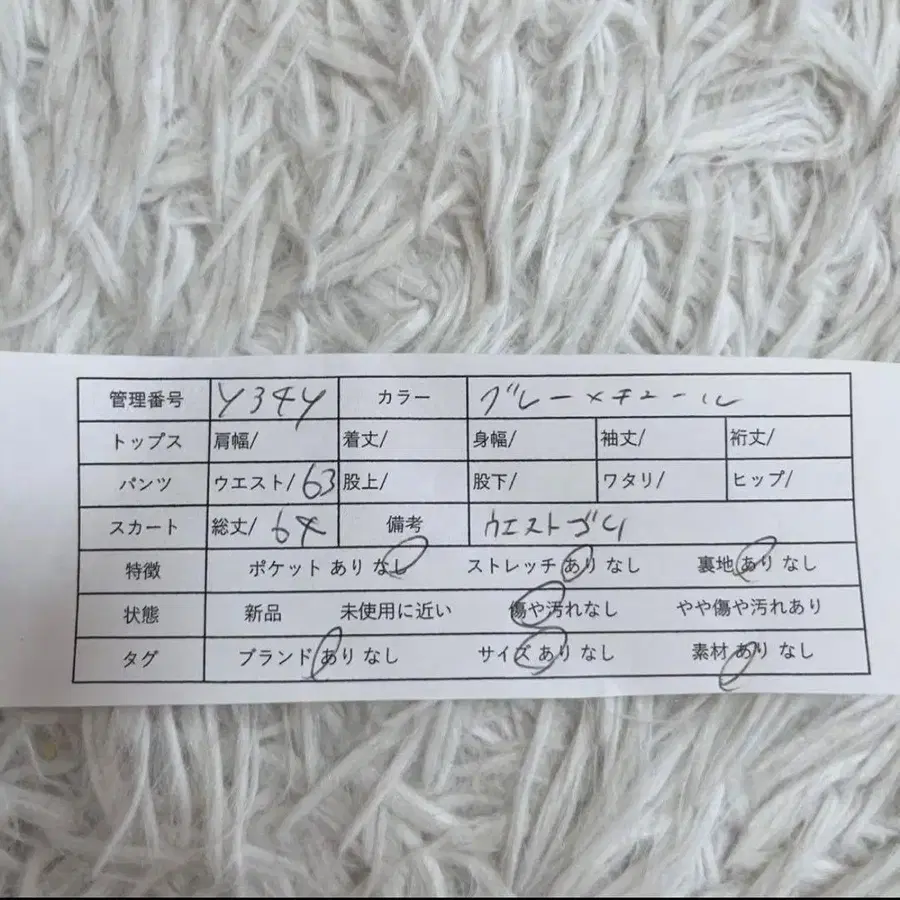 管理番号 Y344 カラー グレー×チュール
トップス 肩幅/ 着丈/ 身幅/ 袖丈/ 裄丈/
パンツ ウエスト/63 股上/ 股下/ ワタリ/ ヒップ/
スカート 総丈/64 備考 ウエストゴム
特徴 ポケット あり なし ストレッチ あり なし 裏地 あり なし
状態 新品 未使用に近い 傷や汚れなし やや傷や汚れあり
タグ ブランド あり なし サイズ あり なし 素材 あり なし